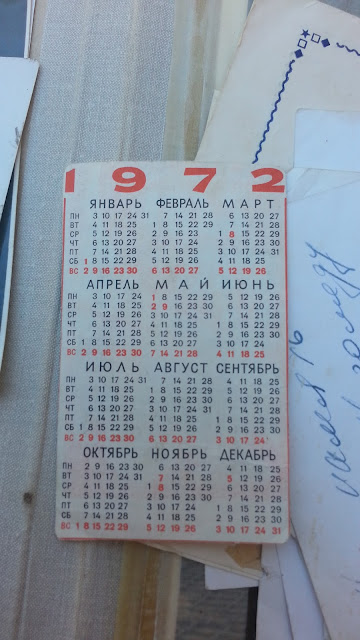 1972
ЯНВАРЬ ФЕВРАЛЬ МАРТ
ПН 3 10 17 24 31 7 14 21 28 6 13 20 27
ВТ 4 11 18 25 1 8 15 22 29 7 14 21 28
СР 5 12 19 26 2 9 16 23 1 8 15 22 29
ЧТ 6 13 20 27 3 10 17 24 2 9 16 23 30
ПТ 7 14 21 28 4 11 18 25 3 10 17 24 31
СБ 1 8 15 22 29 5 12 19 26 4 11 18 25
ВС 2 9 16 23 30 6 13 20 27 5 12 19 26
АПРЕЛЬ МАЙ ИЮНЬ
ПН 3 10 17 24 1 8 15 22 29 5 12 19 26
ВТ 4 11 18 25 2 9 16 23 30 6 13 20 27
СР 5 12 19 26 3 10 17 24 31 7 14 21 28
ЧТ 6 13 20 27 4 11 18 25 1 8 15 22 29
ПТ 7 14 21 28 5 12 19 26 2 9 16 23 30
СБ 1 8 15 22 29 6 13 20 27 3 10 17 24
ВС 2 9 16 23 30 7 14 21 28 4 11 18 25
ИЮЛЬ АВГУСТ СЕНТЯБРЬ
ПН 3 10 17 24 31 7 14 21 28 4 11 18 25
ВТ 4 11 18 25 1 8 15 22 29 5 12 19 26
СР 5 12 19 26 2 9 16 23 30 6 13 20 27
ЧТ 6 13 20 27 3 10 17 24 31 7 14 21 28
ПТ 7 14 21 28 4 11 18 25 1 8 15 22 29
СБ 1 8 15 22 29 5 12 19 26 2 9 16 23 30
ВС 2 9 16 23 30 6 13 20 27 3 10 17 24
ОКТЯБРЬ НОЯБРЬ ДЕКАБРЬ
ПН 2 9 16 23 30 6 13 20 27 4 11 18 25
ВТ 3 10 17 24 31 7 14 21 28 5 12 19 26
СР 4 11 18 25 1 8 15 22 29 6 13 20 27
ЧТ 5 12 19 26 2 9 16 23 30 7 14 21 28
ПТ 6 13 20 27 3 10 17 24 1 8 15 22 29
СБ 7 14 21 28 4 11 18 25 2 9 16 23 30
ВС 1 8 15 22 29 5 12 19 26 3 10 17 24 31